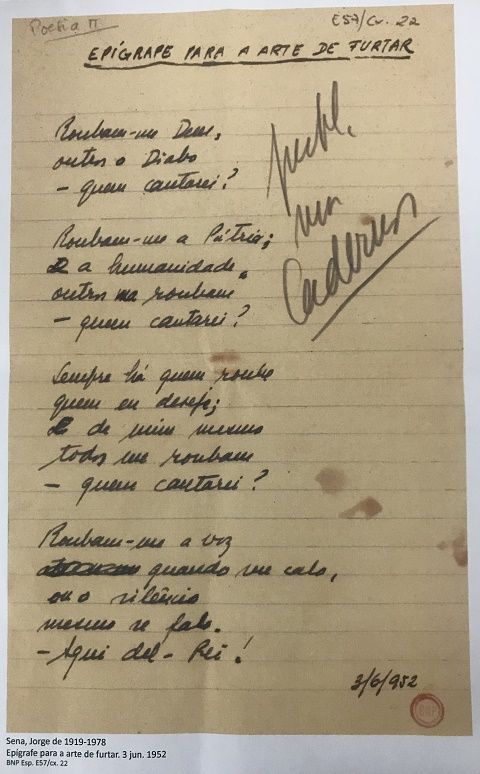 Poesia II
E57/cx. 22
EPÍGRAFE PARA A ARTE DE FURTAR
Roubam-me Deus,
outros o Diabo
– quem cantarei?
publ.
nos
Cadernos
Roubam-me a Pátria;
e a humanidade
outros ma roubam
– quem cantarei?
Sempre há quem roube
quem eu deseje;
e de mim mesmo
todos me roubam
– quem cantarei?
Roubam-me a voz
quando me calo,
ou o silêncio
mesmo se falo.
– Aqui del-Rei!
3/6/952
BNP
Sena, Jorge de 1919-1978
Epígrafe para a arte de furtar. 3 jun. 1952
BNP Esp. E57/cx. 22